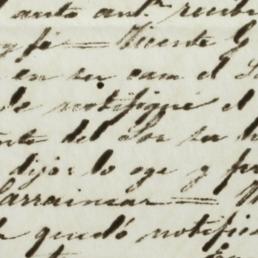 auto ant.r recibi
y fé = Vicente G
en su casa el S
le notifiqué el
del Sor su
dijo: lo oye y
Larrainzar =
quedó notific